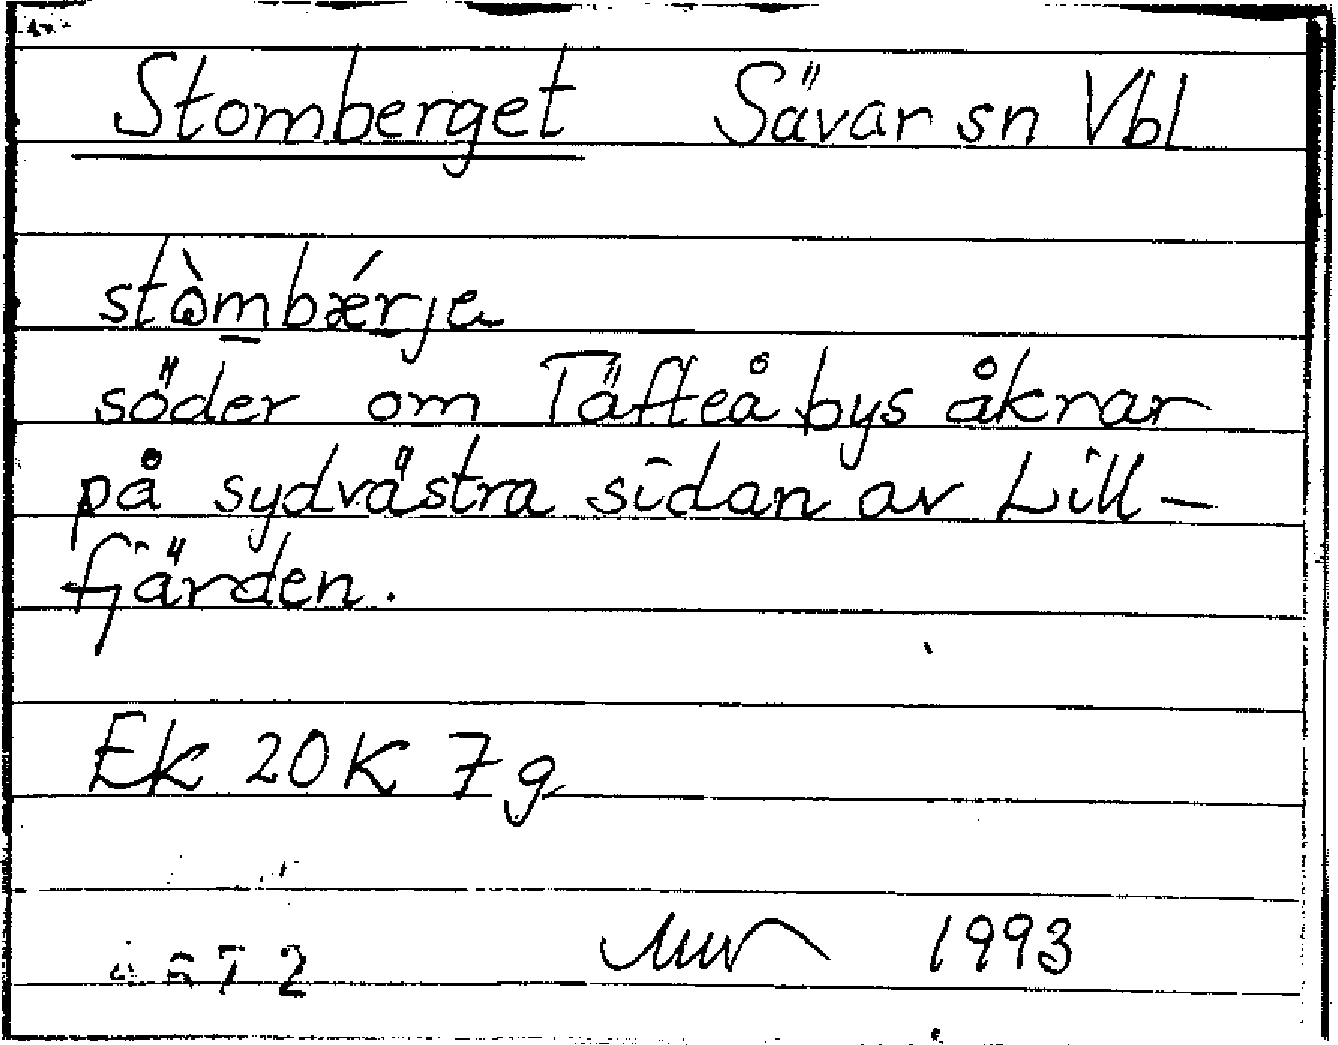 Stomberget Sävar sn Vbl
stòmbǽrja
söder om Täfteå bys åkrar
på sydvästra sidan av Lill-
fjärden.
Ek 20K 7g
1993